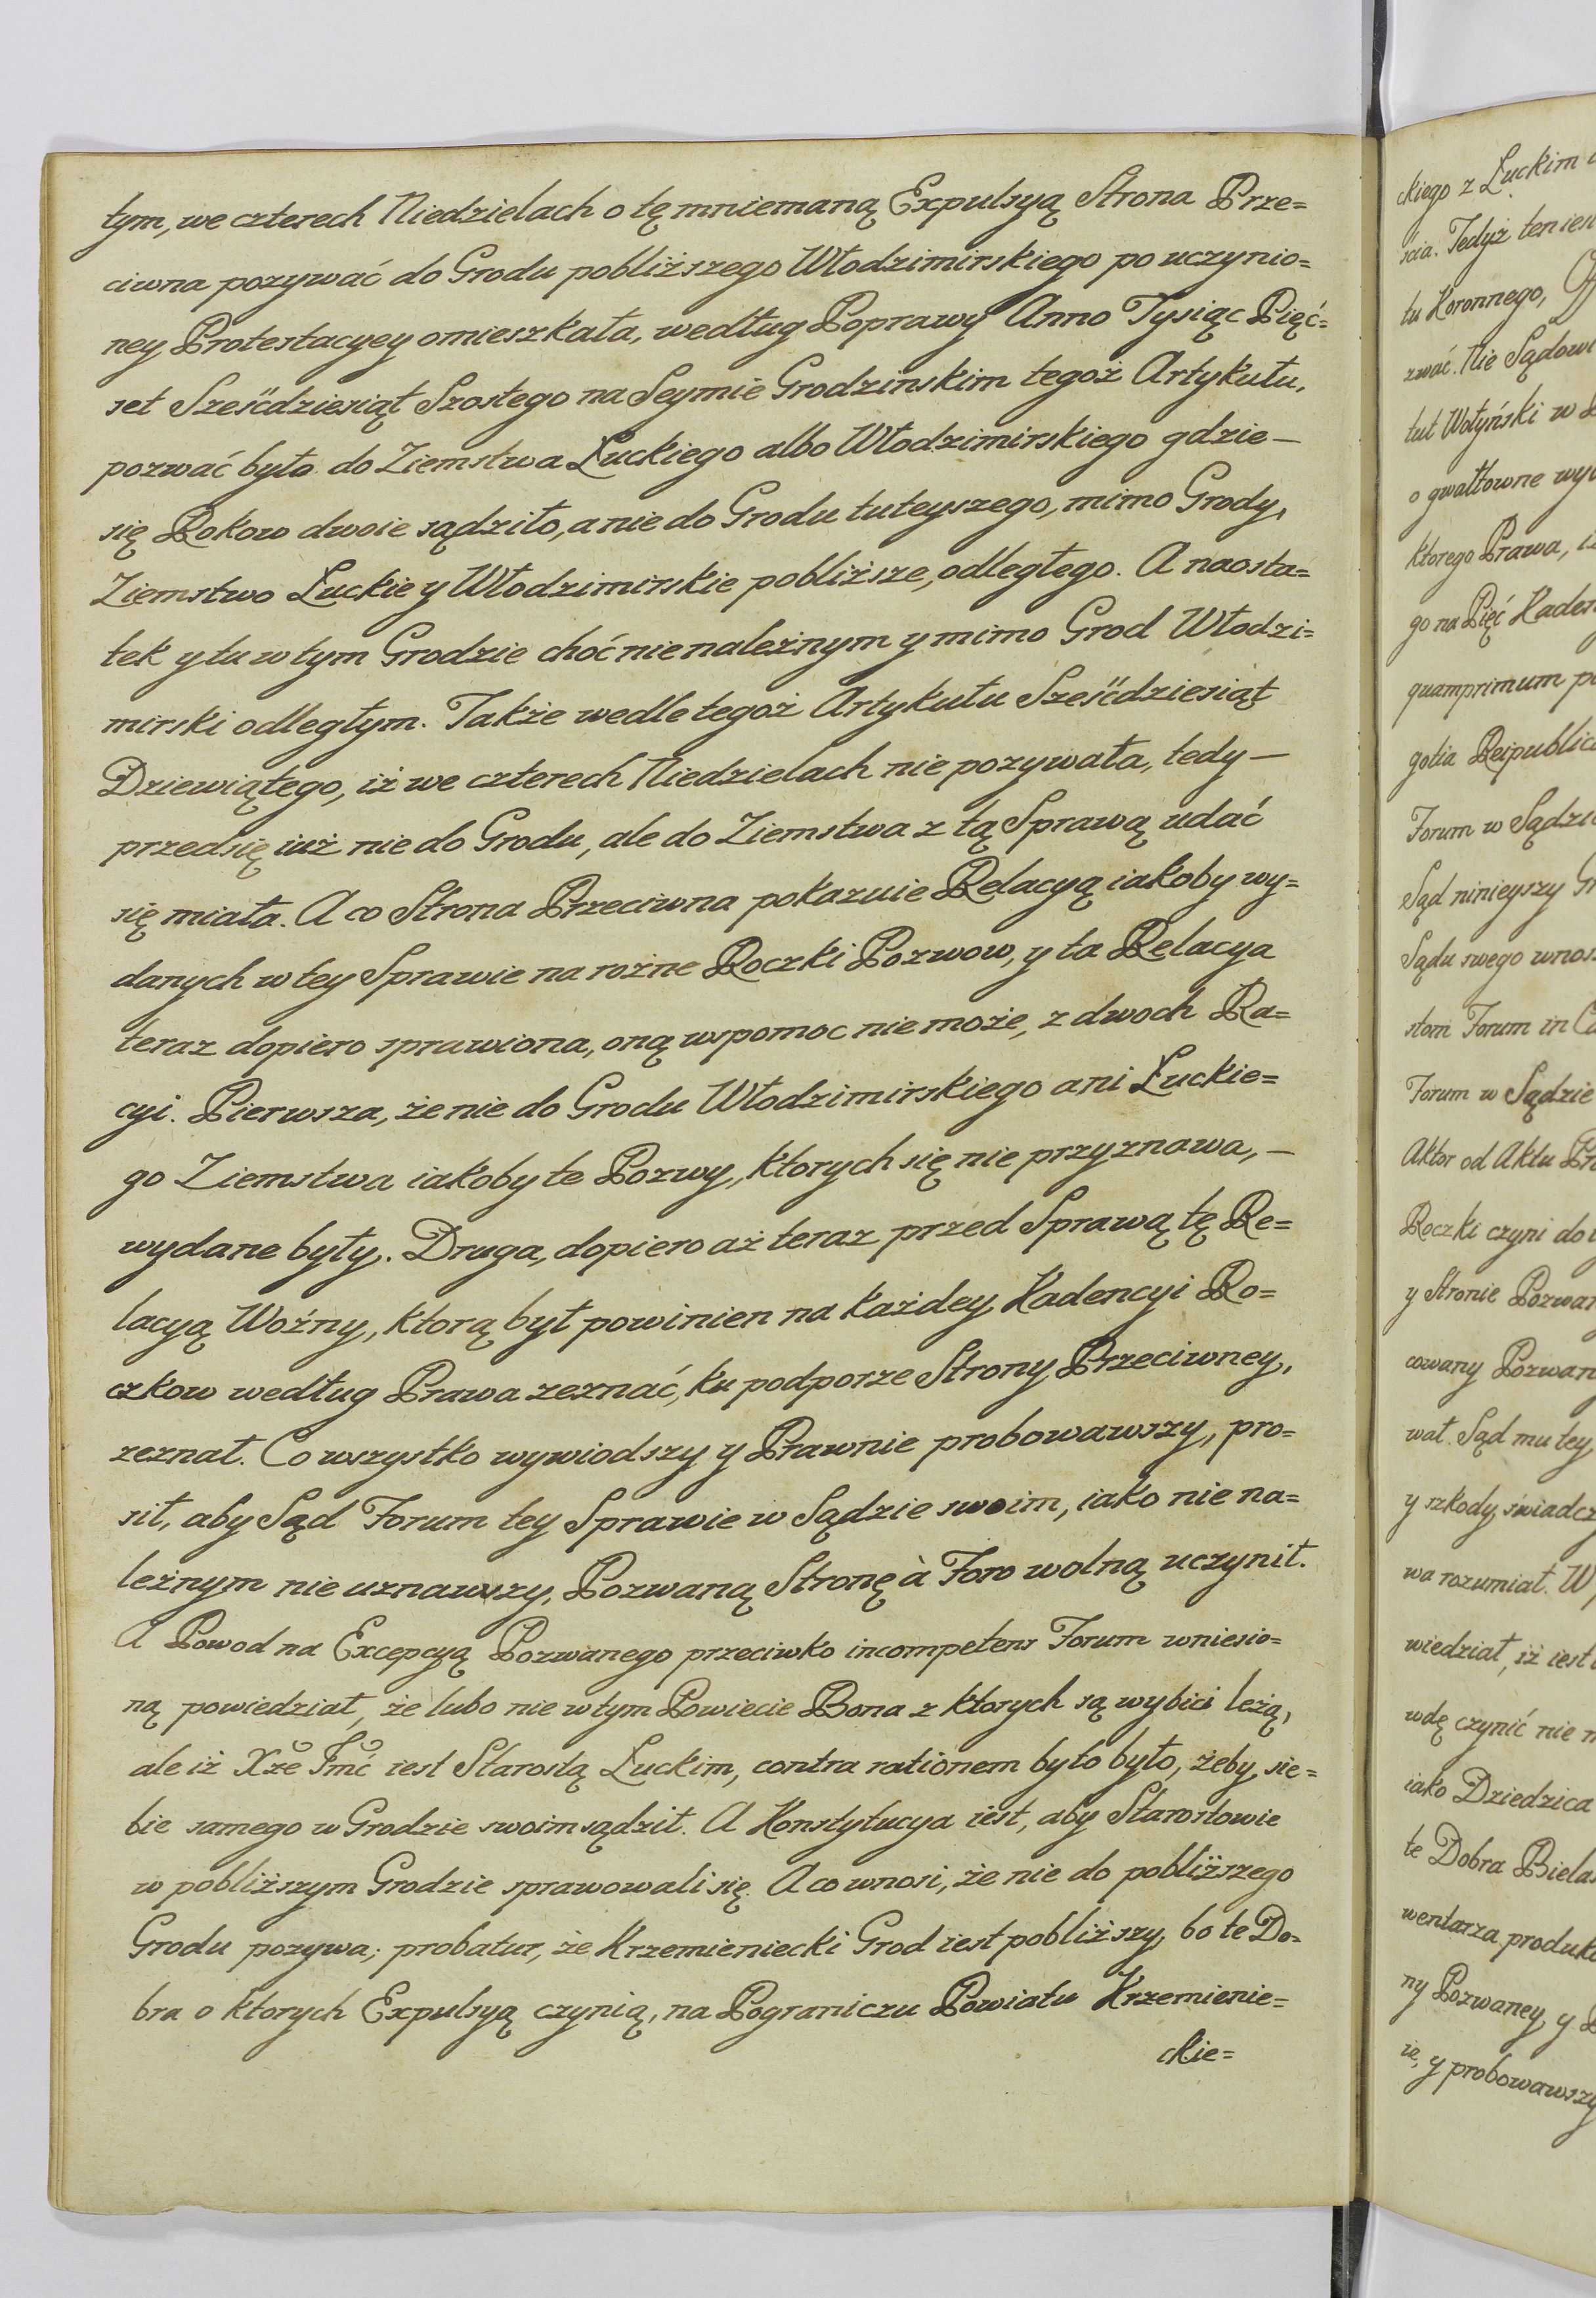 tym, we czterech Niedzielach o tę mniemaną Expulsyą Strona Prze=
ciwna pozywać do Grodu pobliższego Włodzimirskiego po uczynio=
ney Protestacyey omieszkała, według Poprawy Anno Tysiąc Pięć=
set Sześćdziesiąt Szostego na Seymie Grodzinskim tegoż Artykułu,
pozwać było do Ziemstwa Łuckiego albo Włodzimirskiego gdzie —
się Rokow dwoie sądziło, a nie do Grodu tuteyszego, mimo Grody,
Ziemstwo Łuckie y Włodzimirskie pobliższe, odległego. A naosta=
tek y tu w tym Grodzie choć nie należnym y mimo Grod Włodzi=
mirski odległym. Także wedle tegoż Artykułu Sześćdziesiąt
Dziewiątego, iż we czterech Niedzielach nie pozywała, tedy —
przedsię iuż nie do Grodu, ale do Ziemstwa z tą Sprawą udać
się miała. A co Strona Przeciwna pokazuie Relacyą iakoby wy=
danych w tey Sprawie na rożne Roczki Pozwow, y ta Relacya
teraz dopiero sprawiona, oną wspomoc nie może, z dwoch Ra=
cyi. Pierwsza, że nie do Grodu Włodzimirskiego ani Łuckie=
go Ziemstwa iakoby te Pozwy, ktorych się nie przyznawa, —
wydane były. Druga, dopiero aż teraz przed Sprawą tę Re=
lacyą Woźny, ktorą był powinien na każdey Kadencyi Ro=
czkow według Prawa zeznać, ku podporze Strony Przeciwney,
zeznał. Co wszystko wywiodszy y Prawnie probowawszy, pro=
sił, aby Sąd Forum tey Sprawie w Sądzie swoim, iako nie na=
leżnym nie uznawszy, Pozwaną Stronę à Foro wolną uczynił.
A Powod na Excepcyą Pozwanego przeciwko incompetens Forum wniesio=
ną powiedział, że lubo nie w tym Powiecie Bona z ktorych są wybici leżą,
ale iż Xże Jmć iest Starostą Łuckim, contra rationem było było, żeby sie=
bie samego w Grodzie swoim sądził. A Konstytucya iest, aby Starostowie
w pobliższym Grodzie sprawowali się. A co wnosi, że nie do pobliższego
Grodu pozywa; probatur, że Krzemieniecki Grod iest pobliższy, bo te Do=
bra o ktorych Expulsyą czynią, na Pograniczu Powiatu Krzemienie=
ckie=
ckiego z Łuckim
ścia. Tedyż ten
tu Koronnego,
zwać. Nie
tut Wołyński w
o gwałtowne
ktorego Prawa,
go na Pięć
quamprimum
gotia
Forum w
Sąd ninieyszy
Sądu swego
Forum in
Forum w Sądzie
Aktor od Aktu
Roczki czyni do
y Stronie
cowany
wał. Sąd mu tey
y szkody,
wa rozumiał.
wiedział, iż iest
wdę czynić nie
iako Dziedzica
te Dobra
wentarza
ny Pozwaney, y
y probowawszy